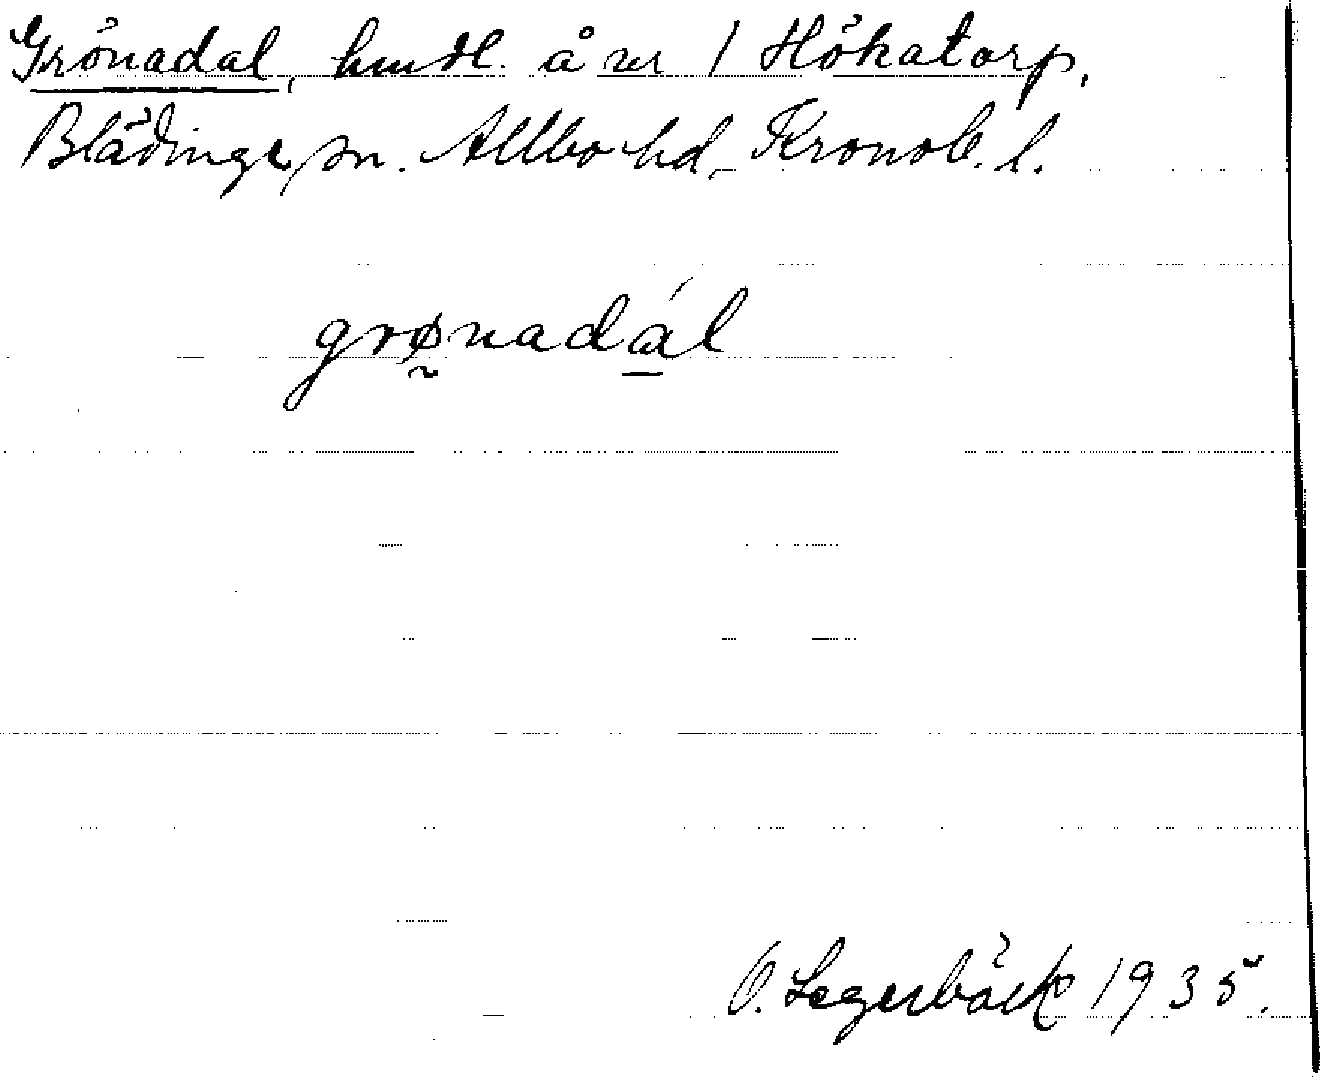 Grönadal, hmdl. å nr 1 Hökatorp,
Blädinge sn. Allbo hd, Kronob. l.
grønadál
O. Segerbäck 1935.